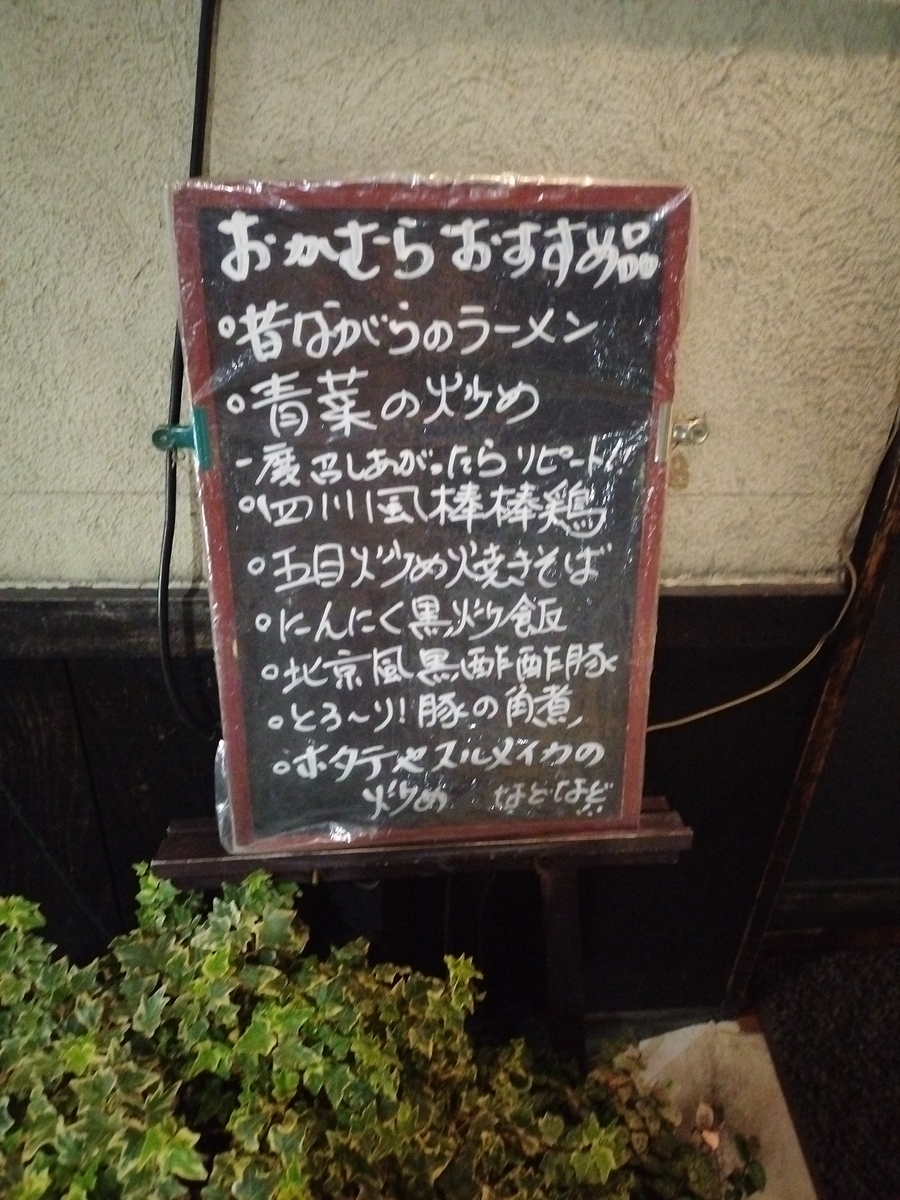 おかむらおすすめ品
○昔ながらのラーメン
○青菜の炒め
一度召しあがったらリピート!!
○四川風棒棒鶏
○五目炒め焼きそば
○にんにく黒炒飯
○北京風黒酢酢豚
○とろ〜り!豚の角煮
○ホタテやスルメイカの
炒め などなど